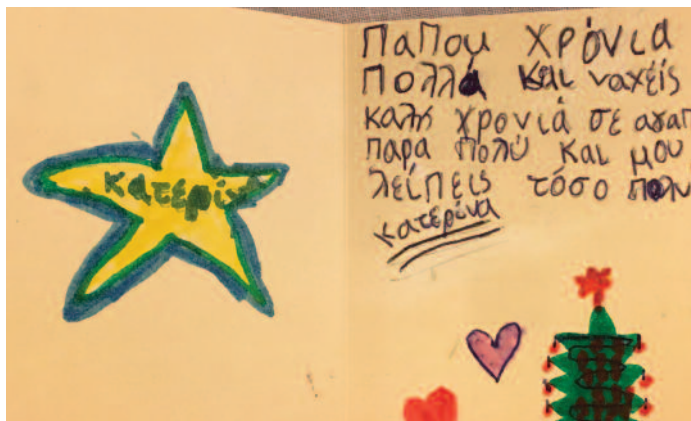 Κατερίνα
Παπου Χρόνια
Πολλά Και ναχείς
καλή χρονιά σε αγαπ
παρα πολύ Και μου
λείπεις τόσο πολυ
κατερίνα